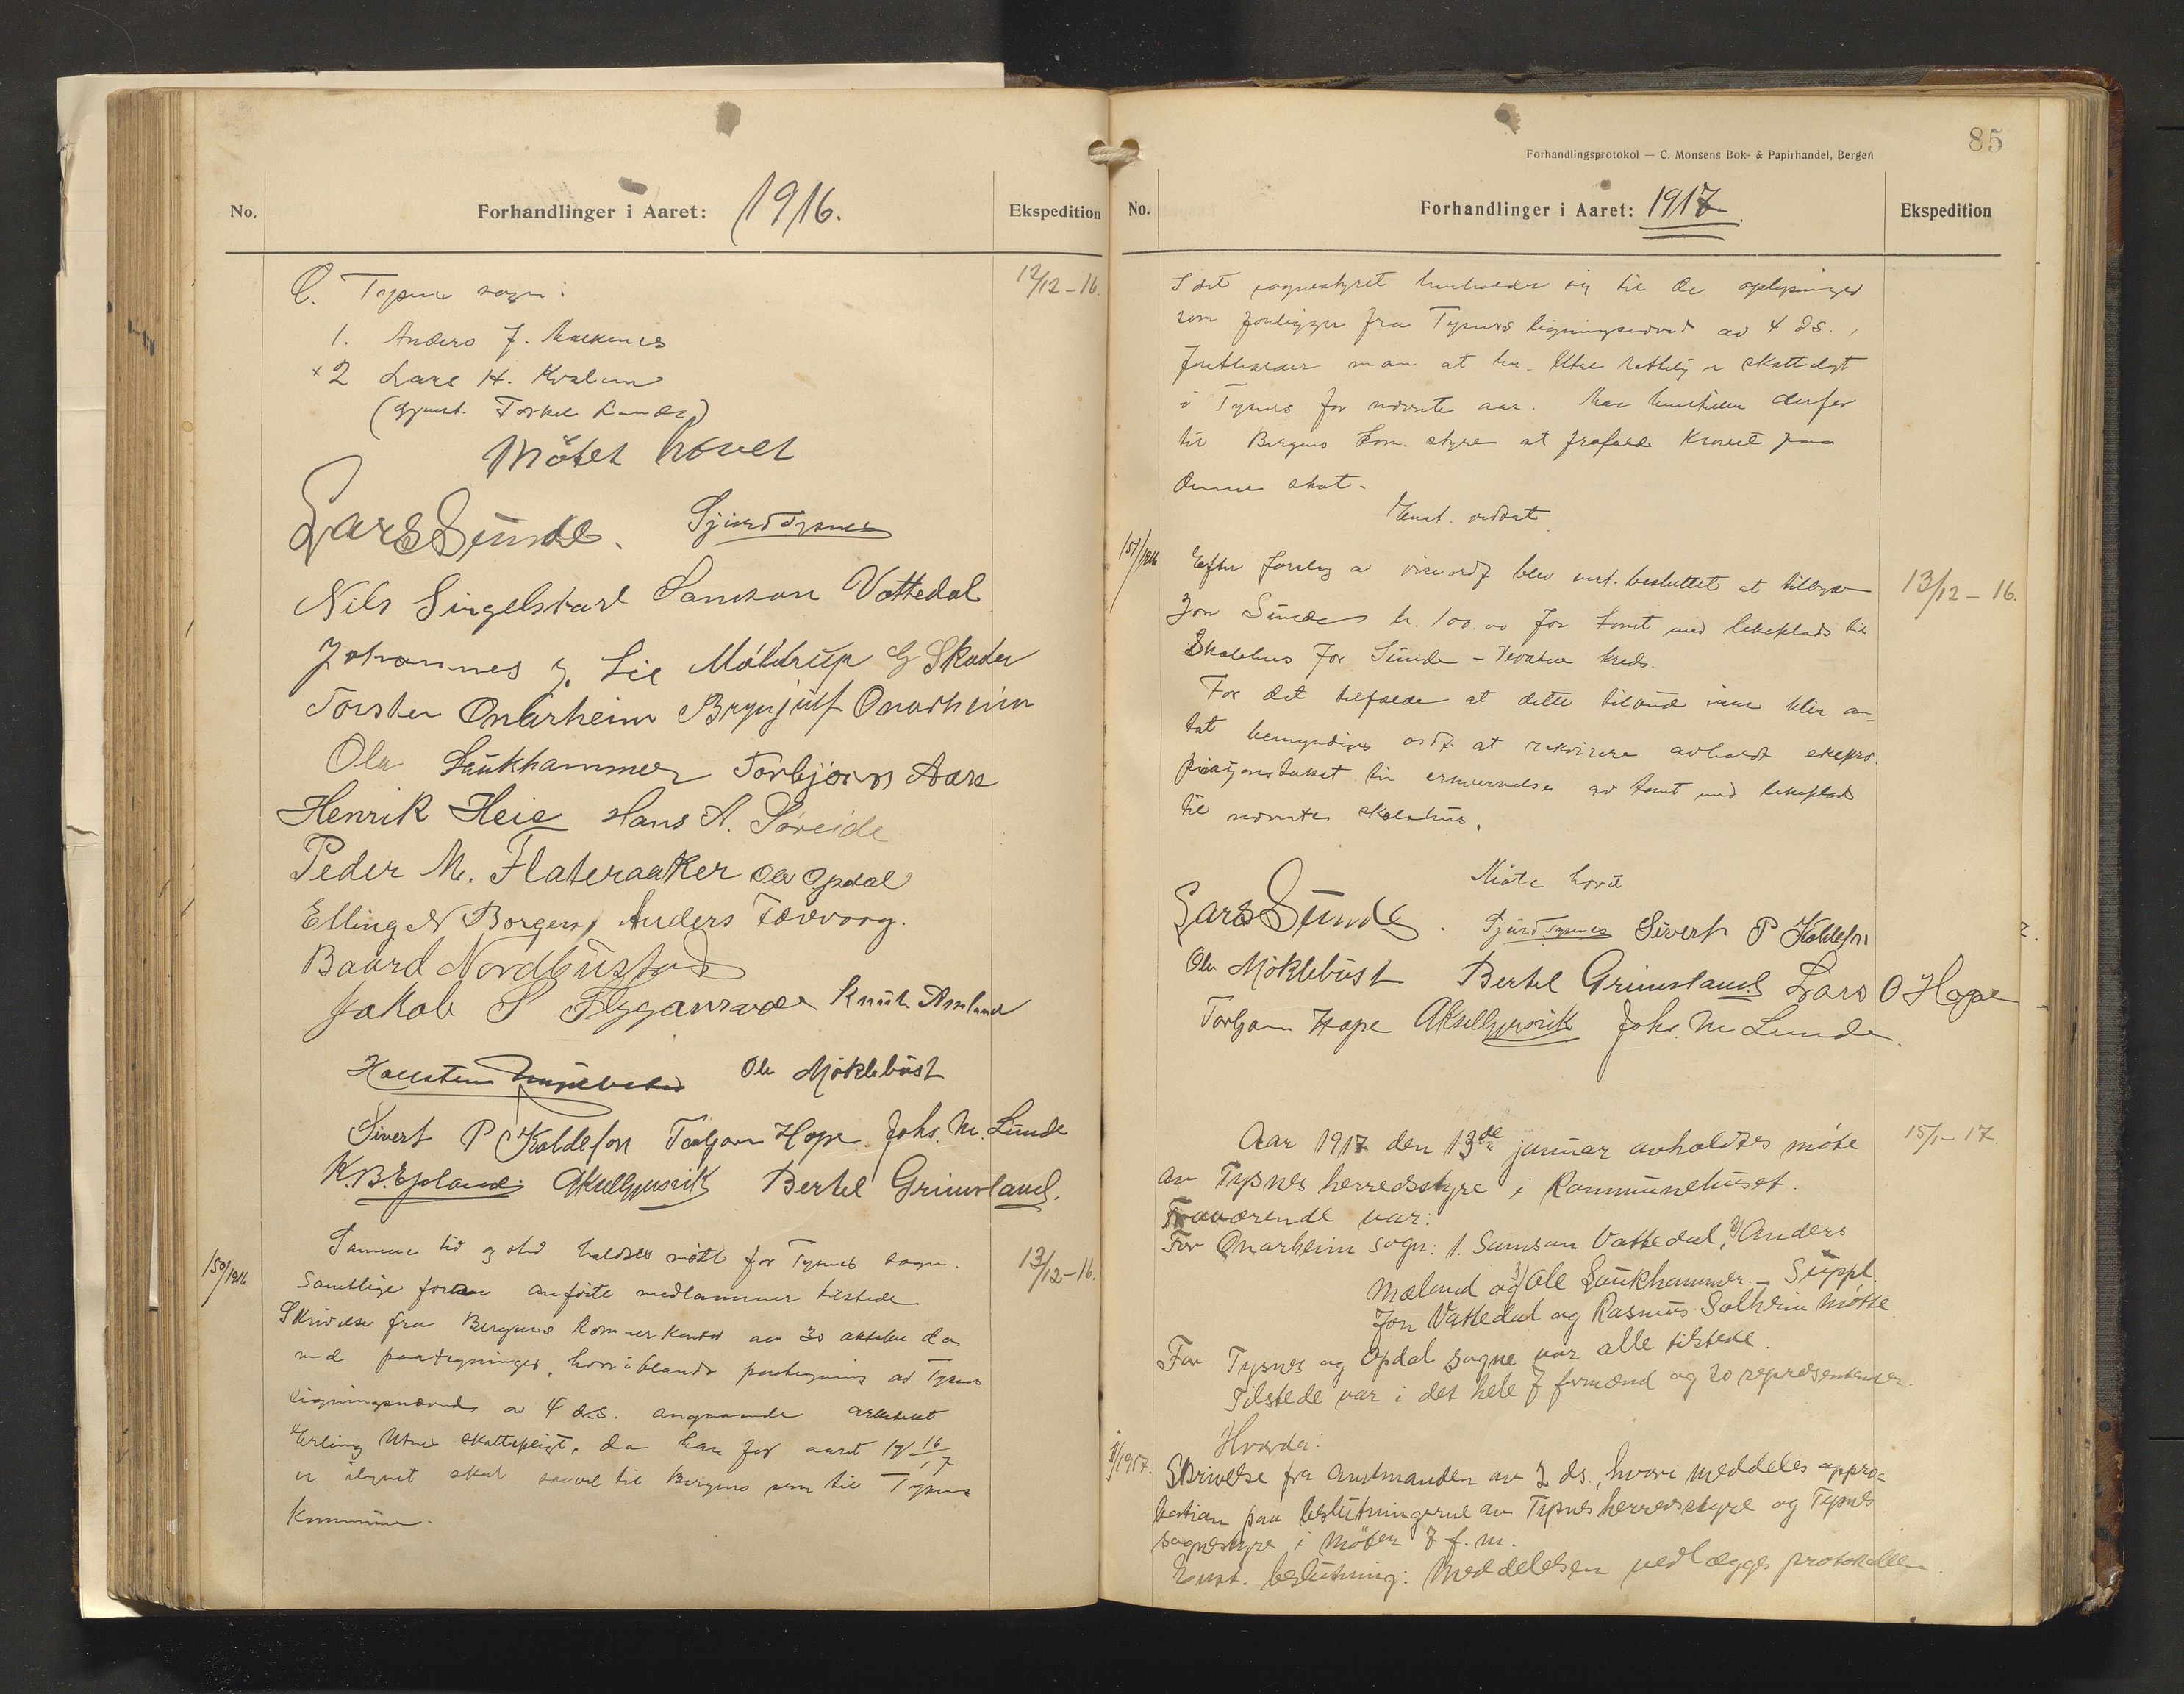 No. Forhandlinger i Aaret: 1916. Ekspedition
C. Tysnes sogn: 12/12-16.
1. Anders J. Malkenes
x 2 Lars H. Kvalem
(gjenst. Torkel Lande)
Mötet hævet
Lars Sunde. Sjurd Tysnes
Nils Singelstad Samson Vattedal
Johannes J. Lie Möldrup G Skader
Torsten Onarheim Brynjulf Onarheim
Ola Laukhammer Torbjörn Aare
Henrik Heie Hans A. Söreide
Peder M. Flateraaker Ola Opdal
Elling N Borgen, Anders Tøvvaag.
Baard Nordbustad
Jakob S Flygansvær Knut Amland
Halsten Ola Möklebust
Sivert P Koldeson Torbjørn Hope Johs. M. Lunde
K.B. Epland. Aksel Gjersvik Bertel Grimsland.
150/1916 Samme tid og sted holdtes møte for Tysnes sogn. 13/12-16.
Samtlige foran anførte medlemmer tilstede
Skrivelse fra Bergens Kemnerkontor av 30 oktober da
med paategninger, hvoriblandt paategning av Tysnes
Ligningsnævnd av 4 ds. angaaende arkitekt
Erling skattepligt, da han for aaret 1916/17
er ilignet skat saavel til Bergens som til Tysnes
Kommune.
85
Forhandlingsprotokol — C. Monsens Bok- & Papirhandel, Bergen
No. Forhandlinger i Aaret: 1917. Ekspedition
Idet sognestyret henholder sig til de oplysninger
som foreligger fra Tysnes ligningsnævnd av 4 ds.,
fastholder man at hr. rettelig er skattelagt
i Tysnes for nævnte aar. Man henstiller derfor
til Bergens kom. styre at frafalde kravet paa
denne skat.
Enst. vedtat
151/1916 Efter forslag av viseordf blev enst. besluttet at tilbyde 13/12-16.
Jon Sunde kr. 100.00 for tomt med lekeplads til
Skolehus for Sunde - kreds.
For det tilfælde at dette tilbud ikke blir an-
tat bemyndiges ordf. at rekvirere avholdt ekspro-
piasjonstakst til erhvervelse av tomt med lekeplads
til nævnte skolehus.
Møte hævet
Lars Sunde. Sjurd Tysnes Sivert P Koldeson
Ola Möklebust Bertel Grimsland Lars O Hope
Torbjørn Hope Aksel Gjersvik Johs. M Lunde.
Aar 1917 den 13de januar avholdtes möte 15/1-17.
av Tysnes herredsstyre i Kommunehuset.
Fraværende var:
For Onarheim sogn: 1. Samson Vattedal, 2) Anders
Mæland og 3) Ole Laukhammer. - Suppl.
Jon Vattedal og Rasmus Solheim møtte
For Tysnes og Opdal sogne var alle tilstede.
Tilstede var i det hele 7 formænd og 20 repræsentanter.
Hvorda:
1/1917. Skrivelse fra Amtmanden av 2 ds., hvori meddeles appro-
bation paa beslutningerne av Tysnes herredsstyre og Tysnes
sognestyre i Möter 7 f. m.
Enst. beslutning: Meddelelsen vedlægges protokollen.